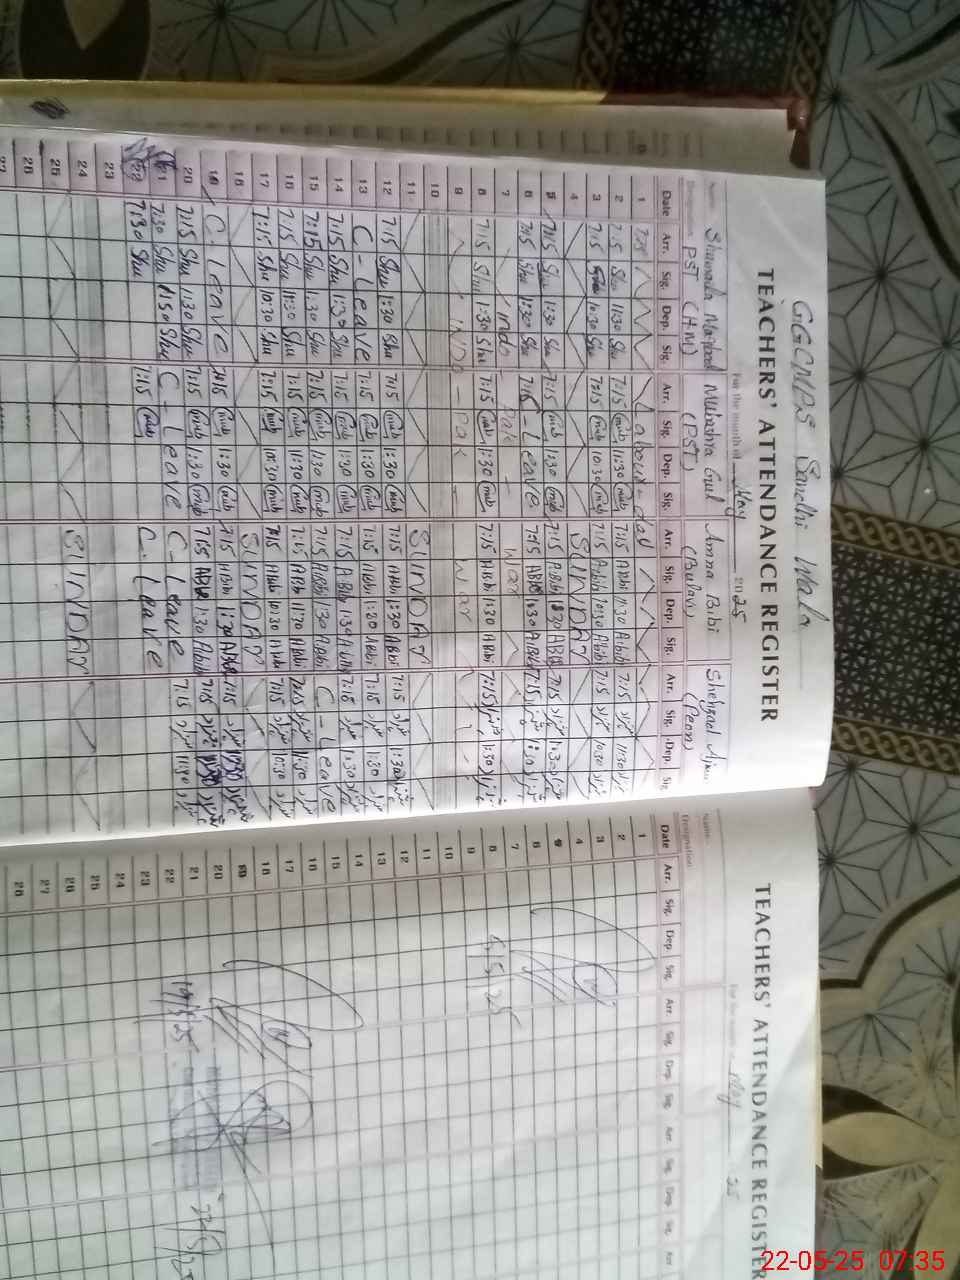 GGCMPS Sandhi Wala
TEACHERS' ATTENDANCE REGISTER
For the month of May 2025
Name Shumaila Maqbool Mubashra Gul Amna Bibi Shehzad Ajmal
Designation PST (H.M) (PST) (Bulavi) (Peon)
Date Arr. Sig. Dep. Sig. Arr. Sig. Dep. Sig. Arr. Sig. Dep. Sig. Arr. Sig. Dep. Sig
1 Labour day
2 7:15 Shu 11:30 Shu 7:15 mub 11:30 mub 7:15 ABbi 11:30 ABbi 7:15 شہزاد 11:30 شہزاد
3 7:15 Shu 10:30 Shu 7:15 mub 10:30 mub 7:15 ABbi 10:30 ABbi 7:15 شہزاد 10:30 شہزاد
4 SUNDAY
5 7:15 Shu 1:30 Shu 7:15 mub 1:30 mub 7:15 ABbi 1:30 ABbi 7:15 شہزاد 1:30 شہزاد
6 7:15 Shu 1:30 Shu 7:15 C-Leave 7:15 ABbi 1:30 ABbi 7:15 شہزاد 1:30 شہزاد
7 Indo Pak - War
8 7:15 Shu 1:30 Shu 7:15 mub 1:30 mub 7:15 ABbi 1:30 ABbi 7:15 شہزاد 1:30 شہزاد
9 INDO - Pak - War
10
11 SUNDAY
12 7:15 Shu 1:30 Shu 7:15 mub 1:30 mub 7:15 ABbi 1:30 ABbi 7:15 شہزاد 1:30 شہزاد
13 C-Leave 7:15 mub 1:30 mub 7:15 ABbi 1:30 ABbi 7:15 شہزاد 1:30 شہزاد
14 7:15 Shu 1:30 Shu 7:15 mub 1:30 mub 7:15 ABbi 1:30 ABbi 7:15 شہزاد 1:30 شہزاد
15 7:15 Shu 1:30 Shu 7:15 mub 1:30 mub 7:15 ABbi 1:30 ABbi C-Leave
16 7:15 Shu 11:30 Shu 7:15 mub 11:30 mub 7:15 ABbi 11:30 ABbi 7:15 شہزاد 11:30 شہزاد
17 7:15 Shu 10:30 Shu 7:15 mub 10:30 mub 7:15 ABbi 10:30 ABbi 7:15 شہزاد 10:30 شہزاد
18 SUNDAY
19 C-Leave 7:15 mub 1:30 mub 7:15 ABbi 1:30 ABbi 7:15 شہزاد 1:30 شہزاد
20 7:15 Shu 1:30 Shu 7:15 mub 1:30 mub 7:15 ABbi 1:30 ABbi 7:15 شہزاد 1:30 شہزاد
21 7:30 Shu 11:30 Shu C-Leave C-Leave 7:15 شہزاد 11:30 شہزاد
22 7:30 Shu 7:15 mub C.Leave
23
24
25 SUNDAY
26
27
TEACHERS' ATTENDANCE REGISTER
For the month of May 25
Name
Designation
Date Arr. Sig. Dep. Sig. Arr. Sig. Dep. Sig. Arr. Sig. Dep. Sig. Arr
1
2
3
4
5
6
7
8 5/5/25
9
10
11
12
13
14
15
16
17
18
19
20
21 19/5/25
22
23
24
25
26
27
28
22-05-25 07:35